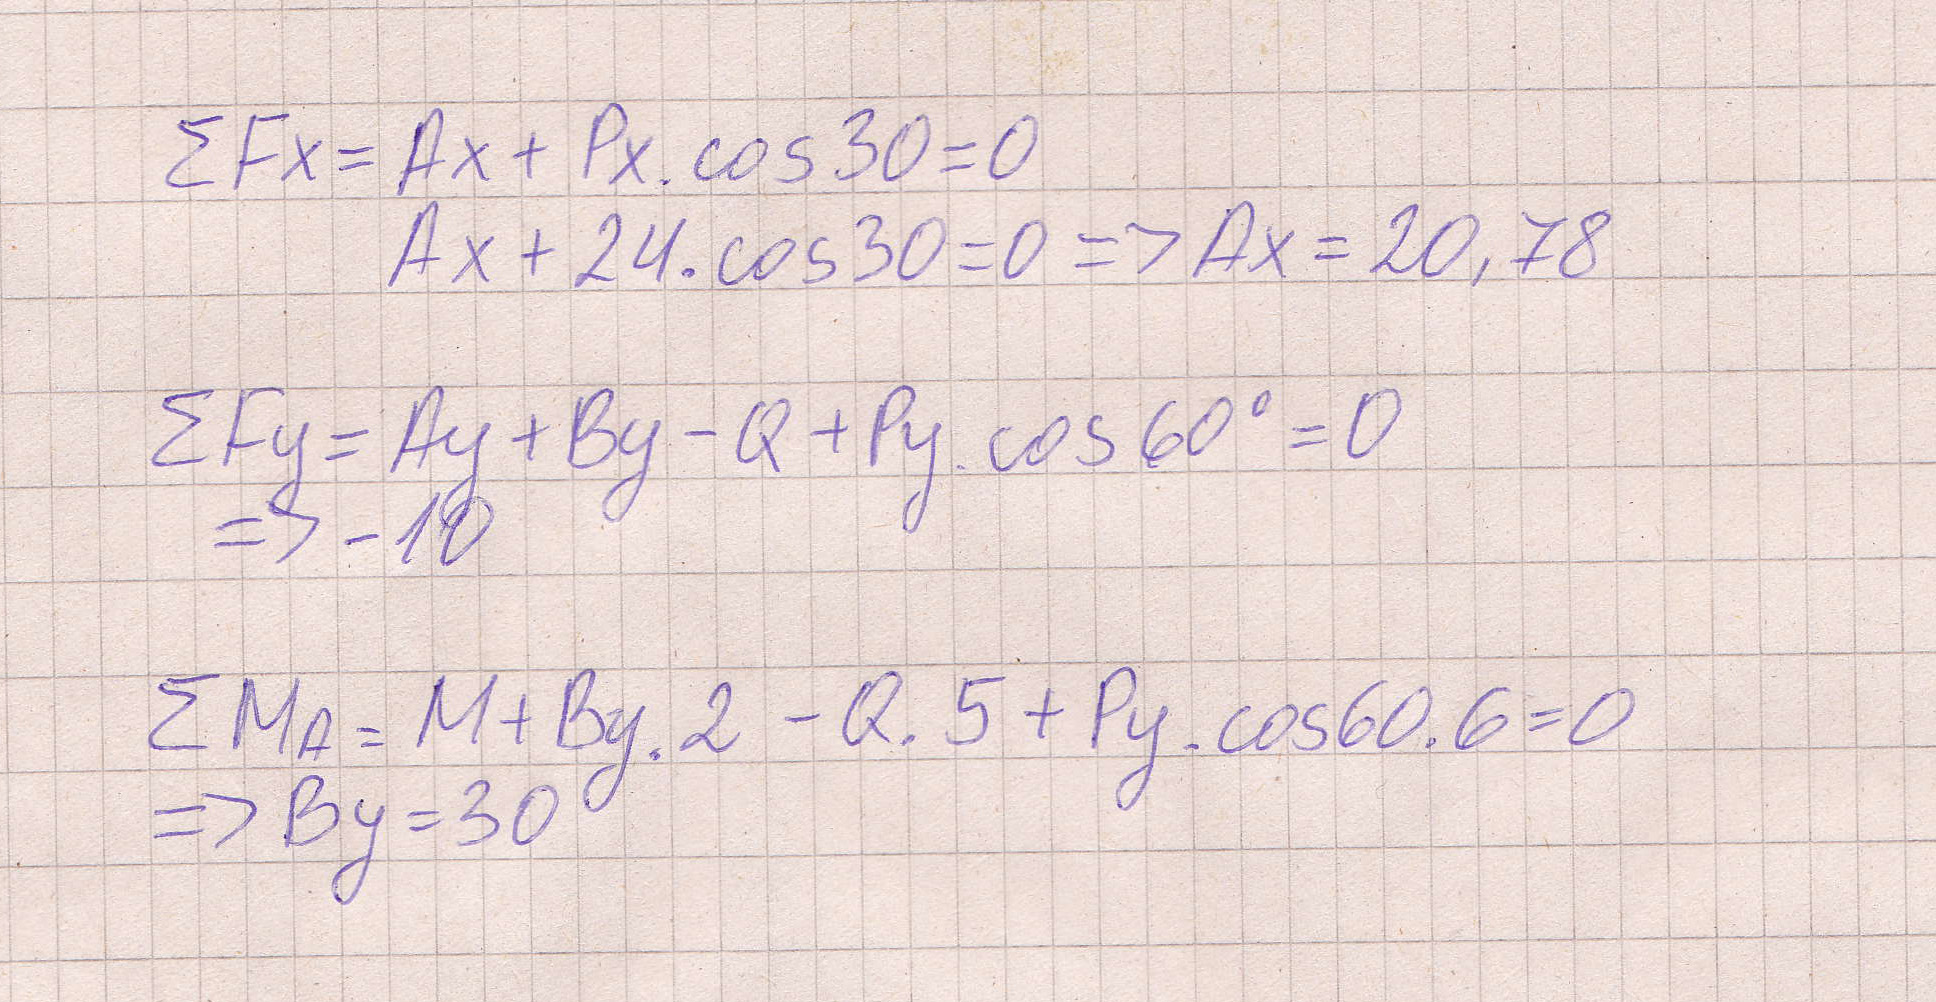 ΣFx = Ax + Px . cos 30 = 0
Ax + 24 . cos 30 = 0 => Ax = 20,78
ΣFy = Ay + By - Q + Py . cos 60° = 0
=> -10
ΣMA = M + By . 2 - Q . 5 + Py . cos 60 . 6 = 0
=> By = 30